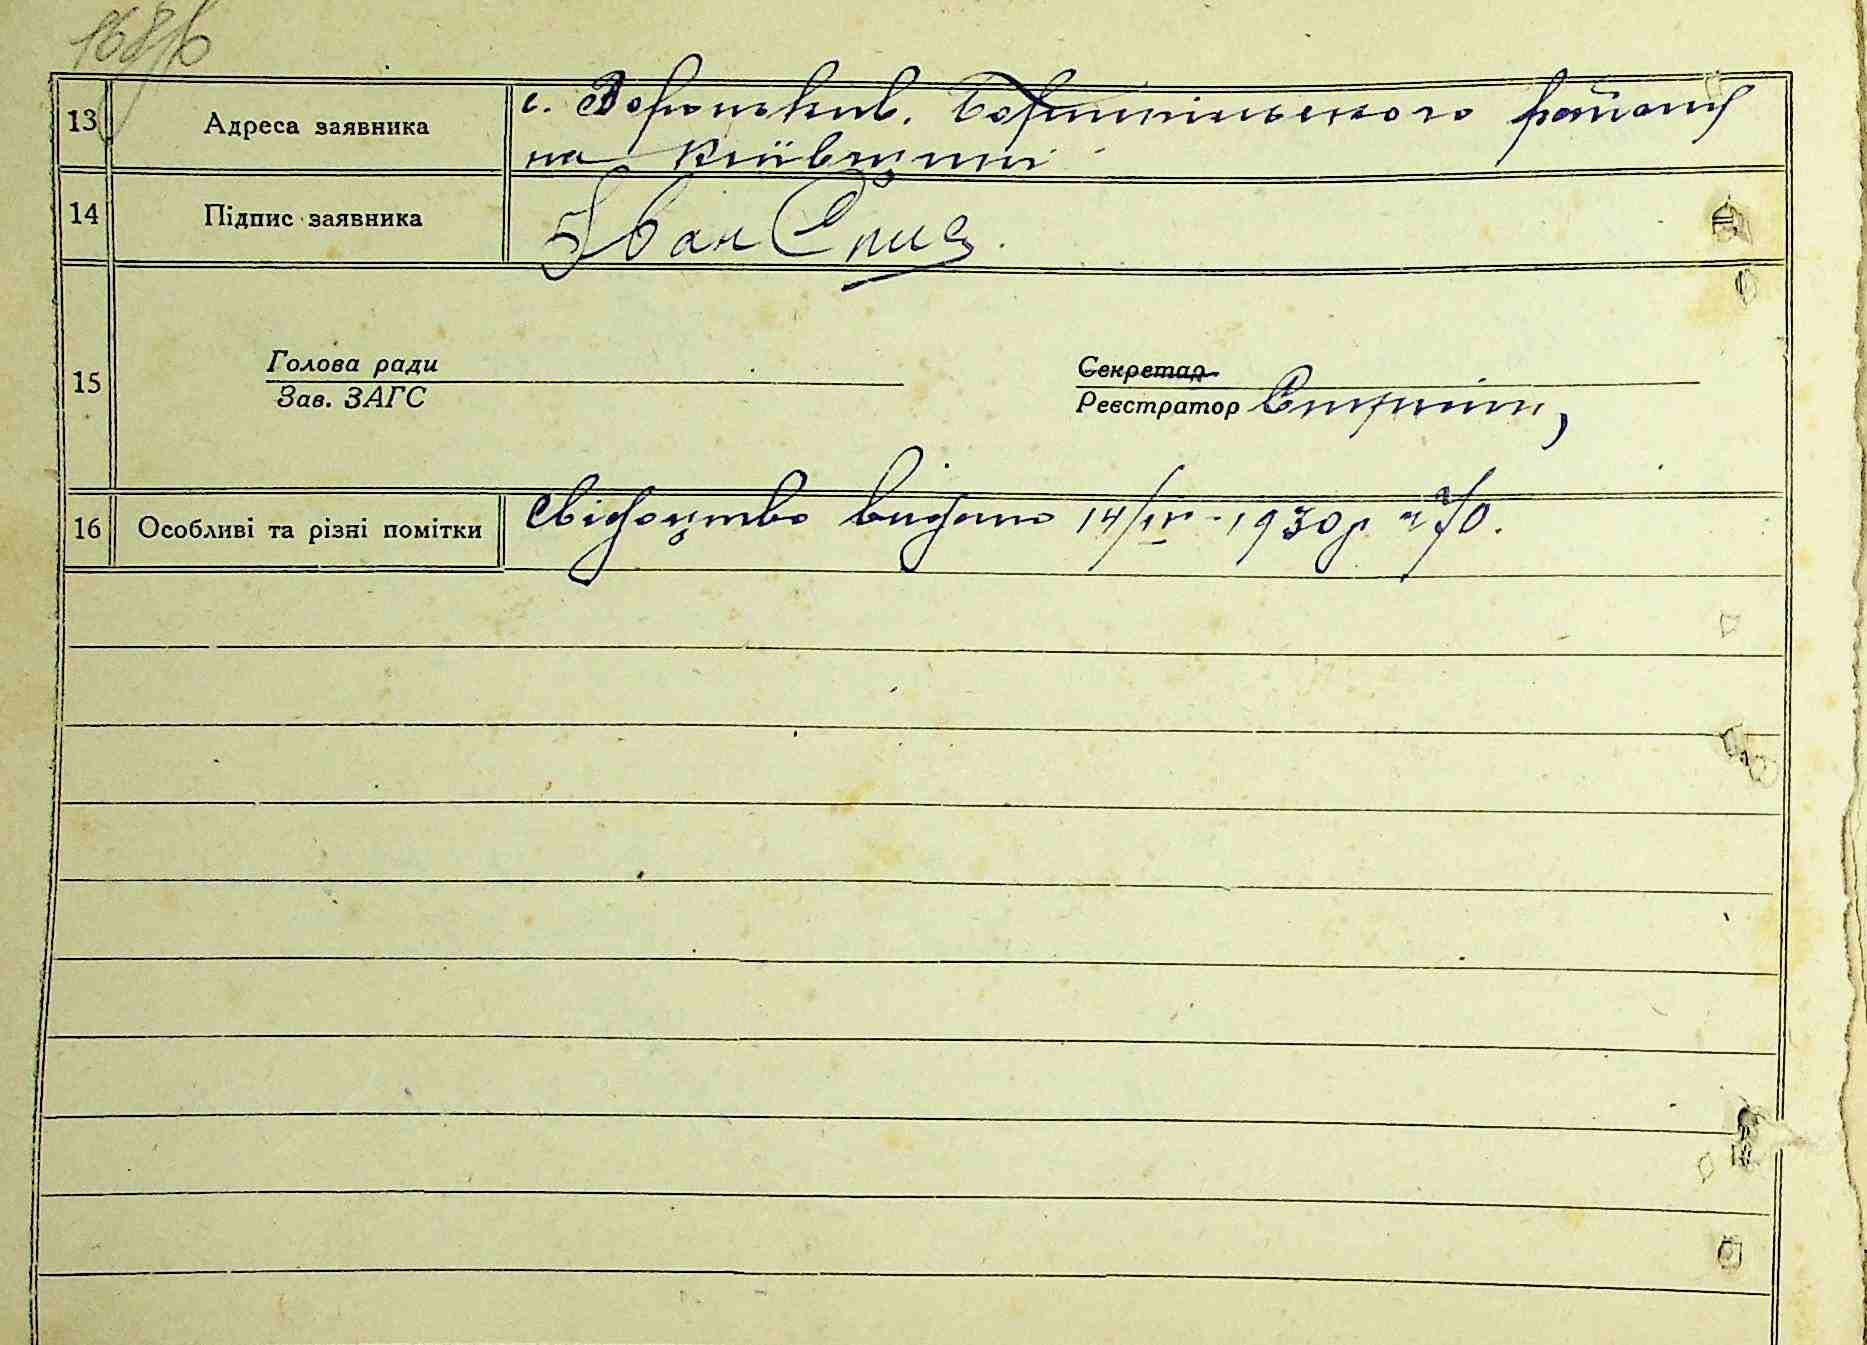 168 б
13 Адреса заявника с. Вороньків. Бориспільського району
на Київщині
14 Підпис заявника Іван Спис
15 Голова ради Секретар
Зав. ЗАГС Реєстратор
16 Особливі та різні помітки Свідоцтво видано 14/IV-1930р. 270.